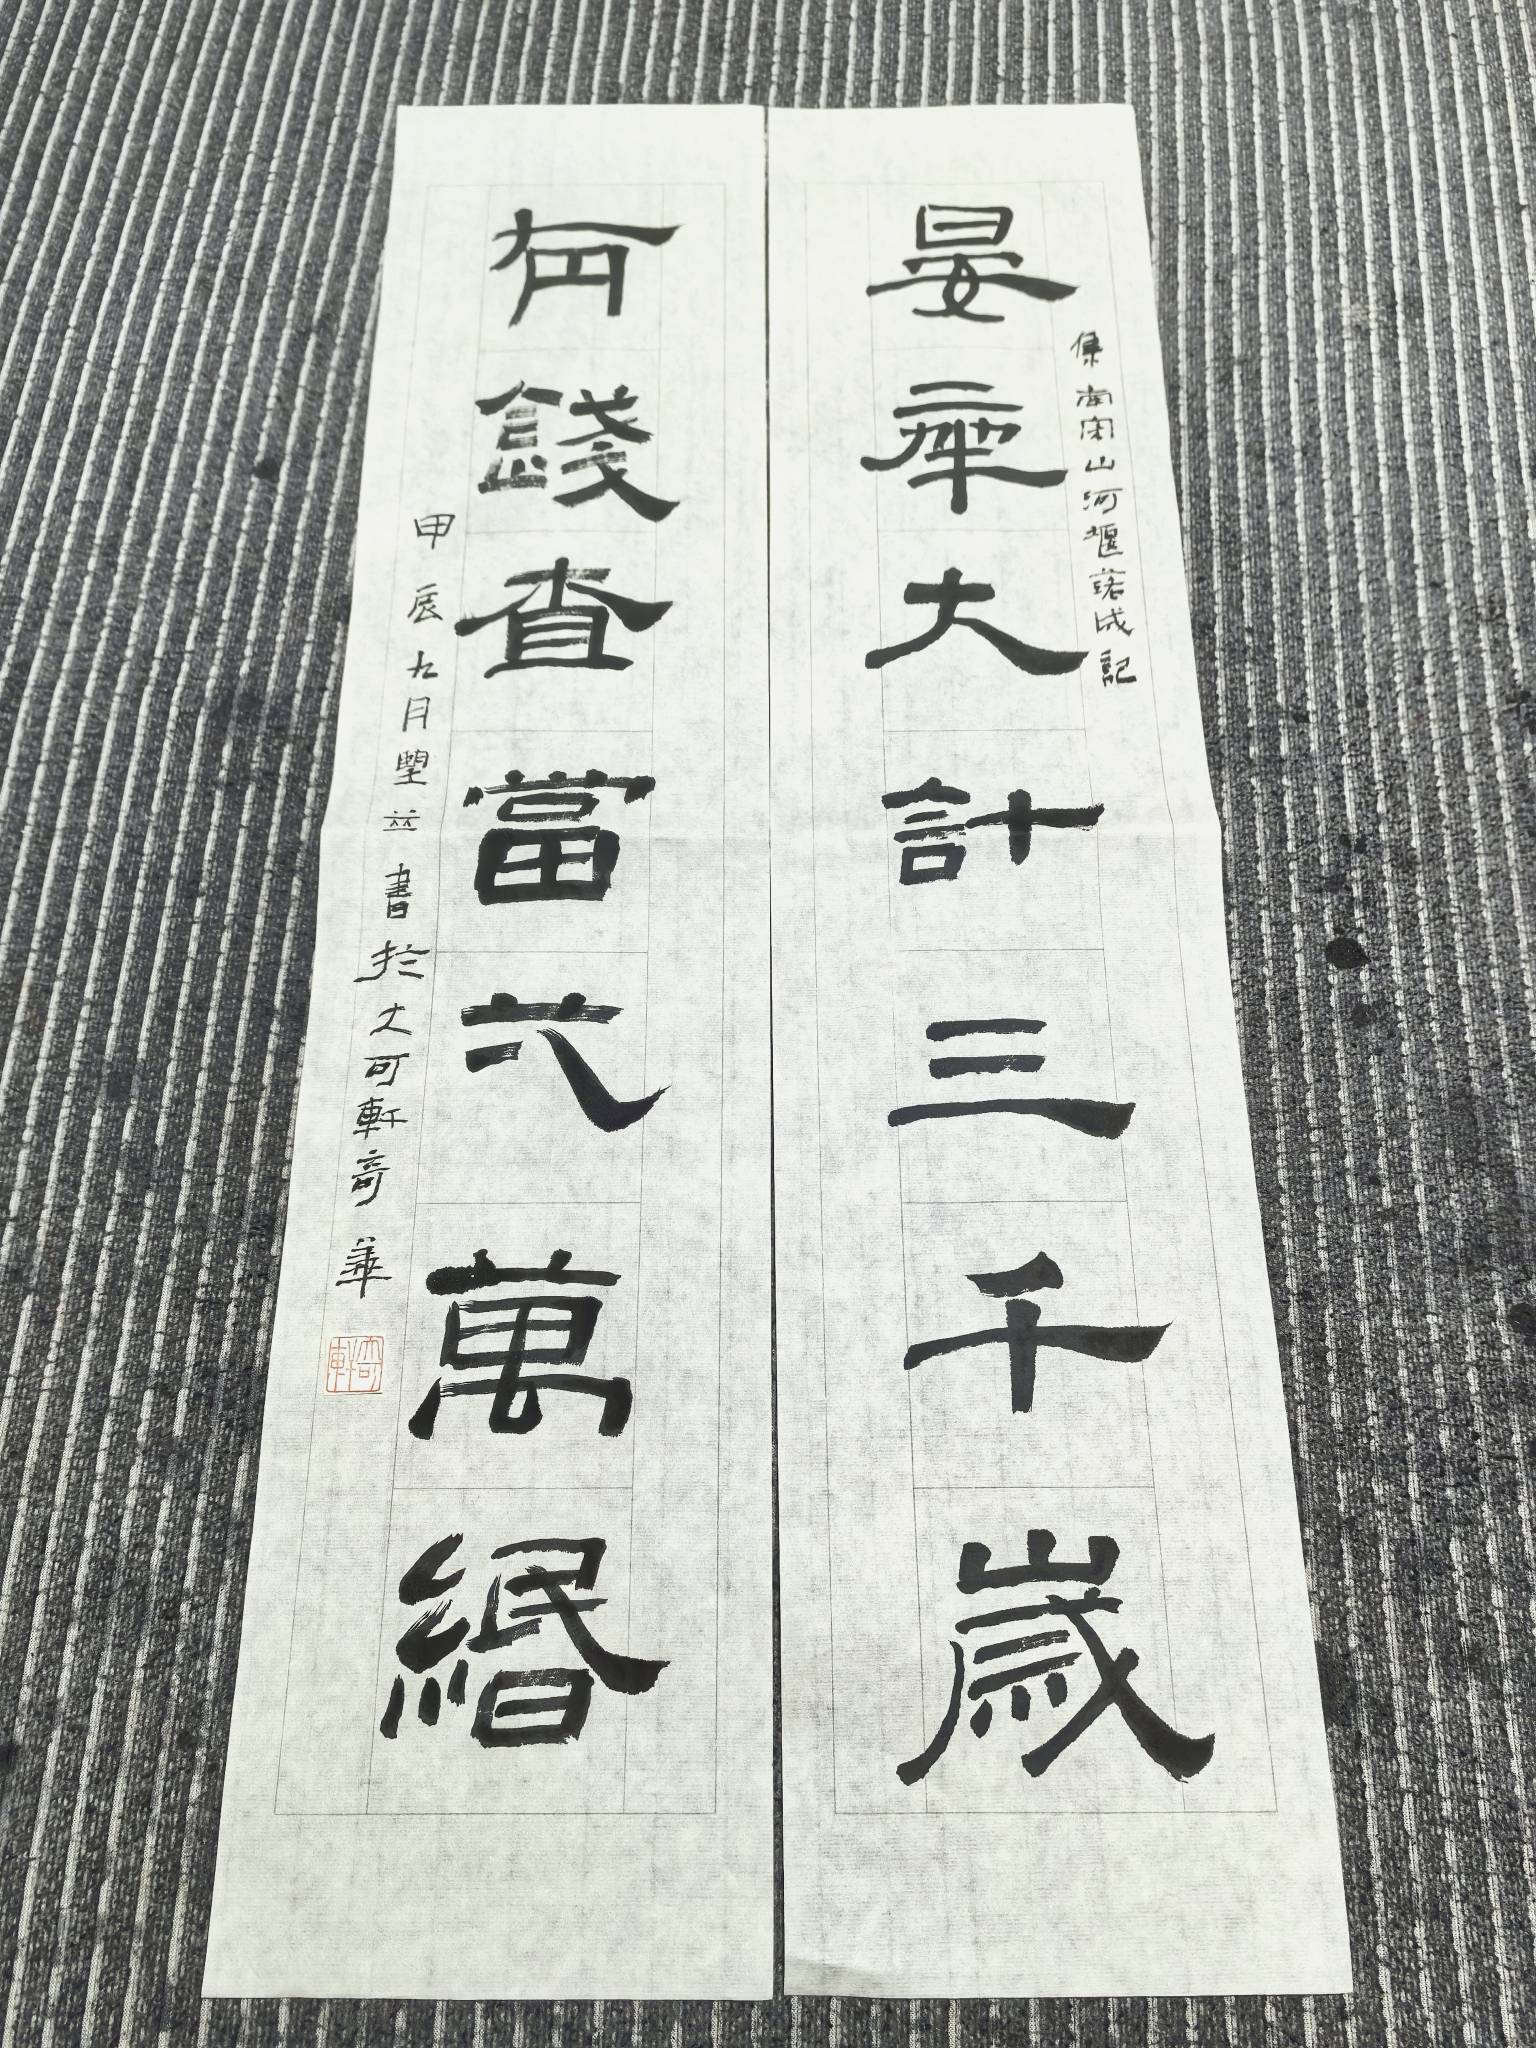 晏大計三千歲
集南宋山河堰落成記
有錢查當弍萬緡
甲辰九月望並書於大可軒奇華